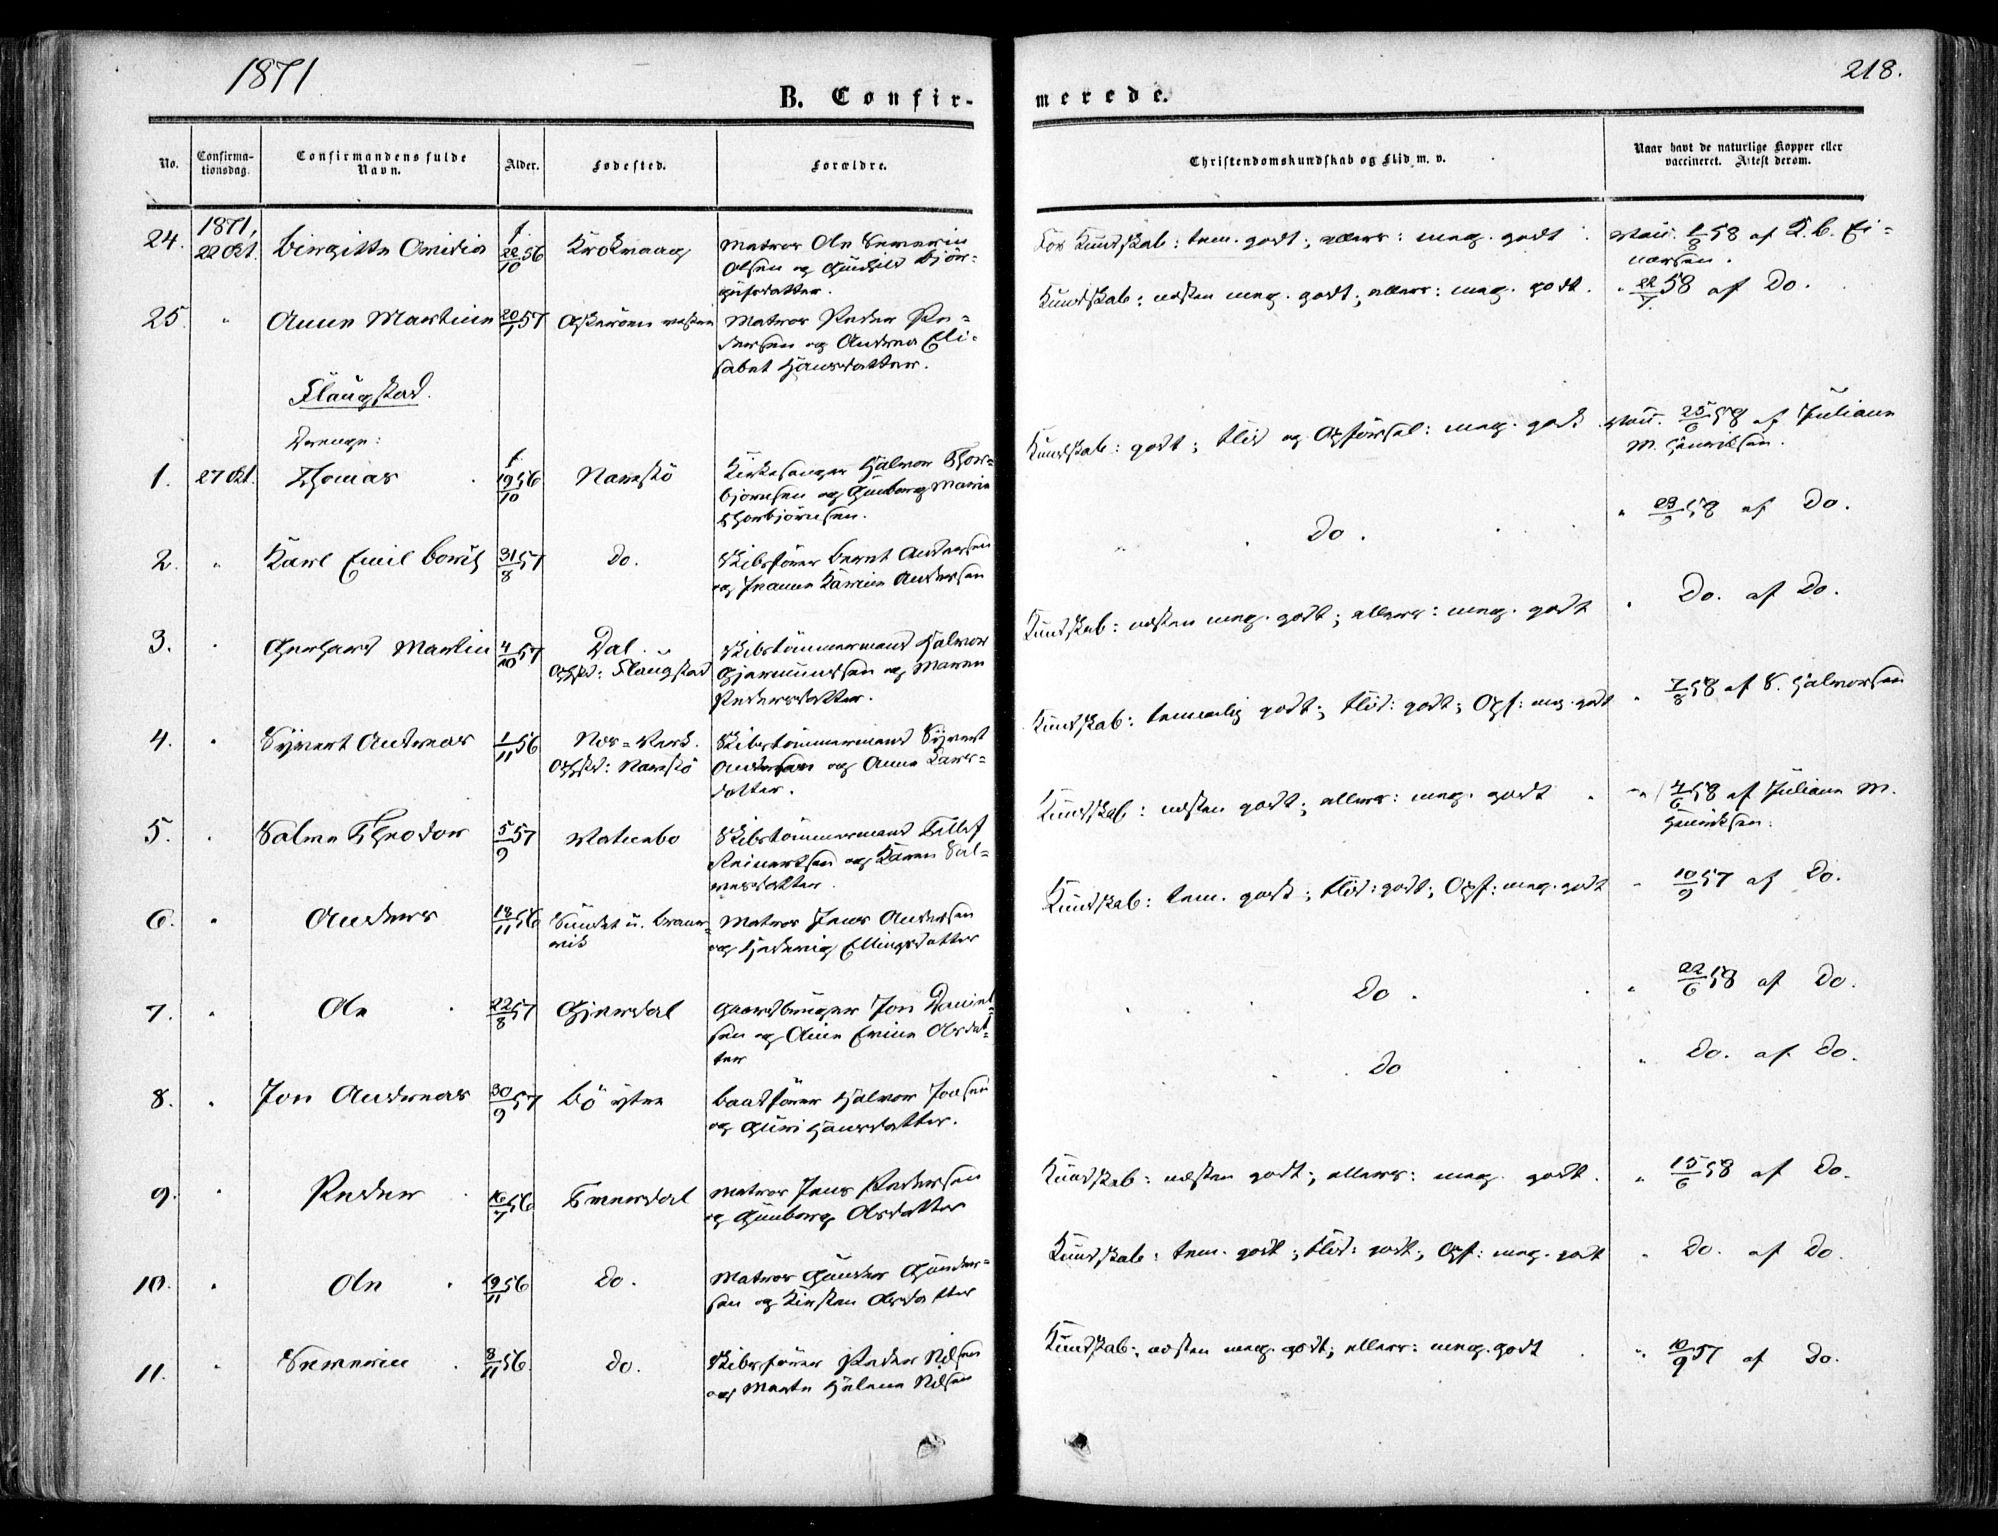 1871
218.
B. Confir-
merede.
No.
Confirma-
tionsdag.
Confirmandens fulde
Navn.
Alder.
Fødested.
Forældre.
Christendomskundskab og Flid m. v.
Naar havt de naturlige Kopper eller
vaccineret. Attest derom.
24.
1871,
22 Okt.
Birgitte
22/10 56
Matros Ole Severin
Olsen og Gunhild Bjør-
datter.
Kundskab: tem. godt; ellers: meg. godt
Vacc. 58 af
25.
"
Anne Martine
20/1 57
Askerøen vestre
Matros Peder Pe-
dersen og Andrea Eli-
sabet Hansdatter.
Kundskab: næsten meg. godt; ellers: meg. godt.
" 58 af Do.
Flaugstad.
Drenge:
1.
27 Okt.
Thomas
19/10 56
Narestø
Kirkesanger Halvor Thor-
bjørnsen og Gunborg Marie
Thorbjørnsen.
Kundskab: godt; Flid og Opførsel: meg. godt
Vacc. 25/6 58 af Juliane
M. Henriksen.
2.
"
Karl Emil
31/8 57
Do.
Skibsfører Bernt Andersen
og Karine Andersen
Do.
" 58 af Do.
3.
"
Gerhard Martin
4/10 57
Dal
Opf.st: Flaugstad
Skibstømmermand Halvor
Gjermundsen og Maren
Pedersdatter.
Kundskab: næsten meg. godt; ellers: meg. godt
" Do. af Do.
4.
"
Syvert Andreas
1/11 56
Næs-Verk.
Opf.st: Narestø
Skibstømmermand Syvert
Andersen og Anne Lars-
datter.
Kundskab: temmelig godt; Flid: godt; Opf: meg. godt
" 7/8 58 af S. Halvorsen
5.
"
Salve Theodor
5/9 57
Vatnebo
Skibstømmermand Tellef
Reinertsen og Karen Sal-
vesdatter.
Kundskab: næsten godt; ellers: meg. godt
" 4/6 58 af Juliane M.
Henriksen.
6.
"
Anders
18/11 56
Sundet u. Brans-
vik
Matros Jens Andersen
og Hedevig Ellingsdatter
Kundskab: tem. godt; Flid: godt; Opf: meg. godt
" 10/9 57 af Do.
7.
"
Ole
22/8 57
Gjerdal
Gaardbruger Jon Daniel-
sen og Ane Oline Olsdat-
ter
Do.
" 22/6 58 af Do.
8.
"
Jon Andreas
30/9 57
Bø ytre
Baadfører Halvor Jonsen
og Guri Hansdatter.
Do
" Do. af Do.
9.
"
Peder
16/7 56
Tverdal
Matros Jens Pedersen
og Gunborg Olsdatter
Kundskab: næsten godt; ellers: meg. godt.
" 15/6 58 af Do.
10.
"
Ole
19/11 56
Do.
Matros Gunder Gunder-
sen og Kirsten Olsdatter
Kundskab: tem. godt; Flid: godt; Opf: meg. godt
" Do. af Do.
11.
"
Severin
8/11 56.
Do.
Skibsfører Peder Nilsen
og Marte Helene Nilsen
Kundskab: næsten meg. godt; ellers: meg. godt
" 10/9 57 af Do.